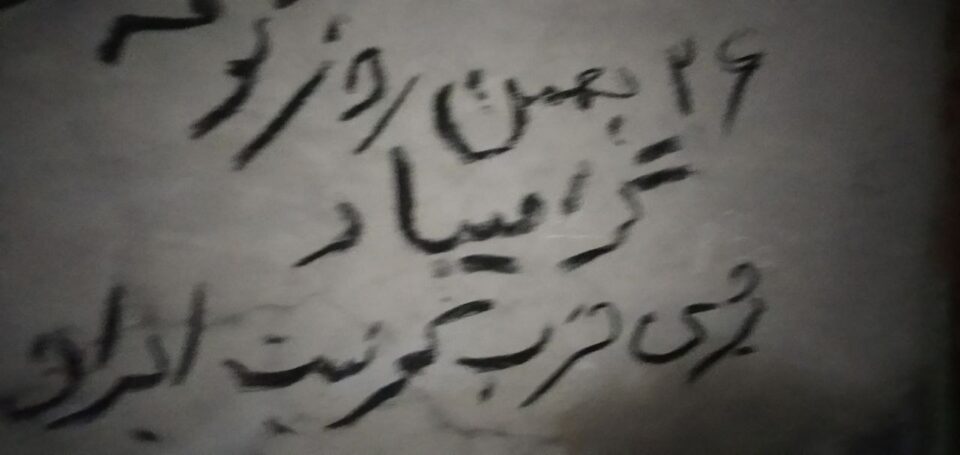 ۲۶ بهمن روز توکه
گرامیباد
چری حزب کمونیست ایران